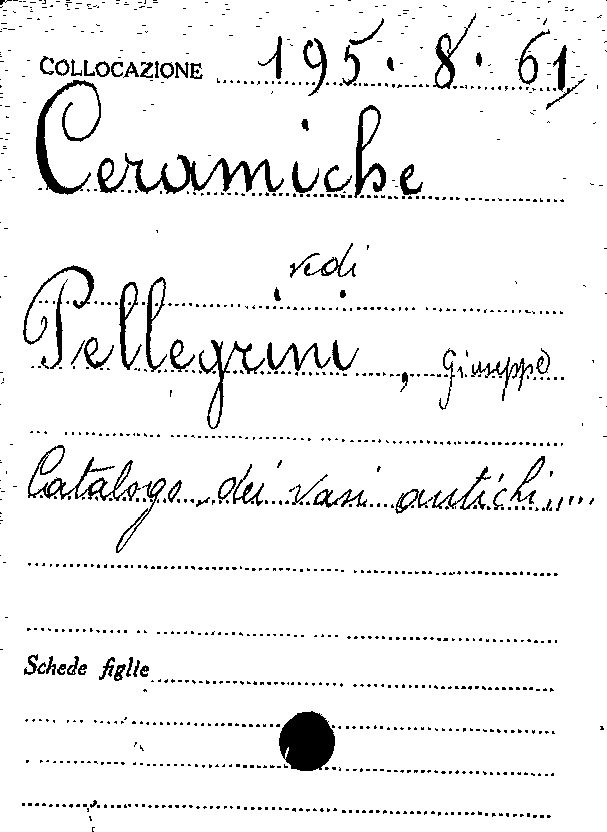 COLLOCAZIONE 195.8.61
Ceramiche
vedi
Pellegrini, Giuseppe
Catalogo dei vasi antichi.....
Schede figlie